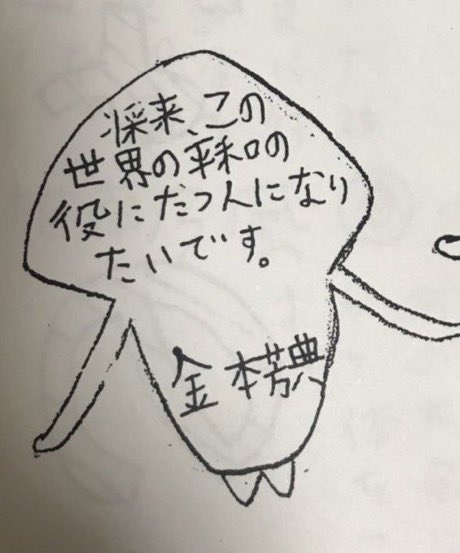 将来、この
世界の平和の
役にだつ人になり
たいです。
金本芳典